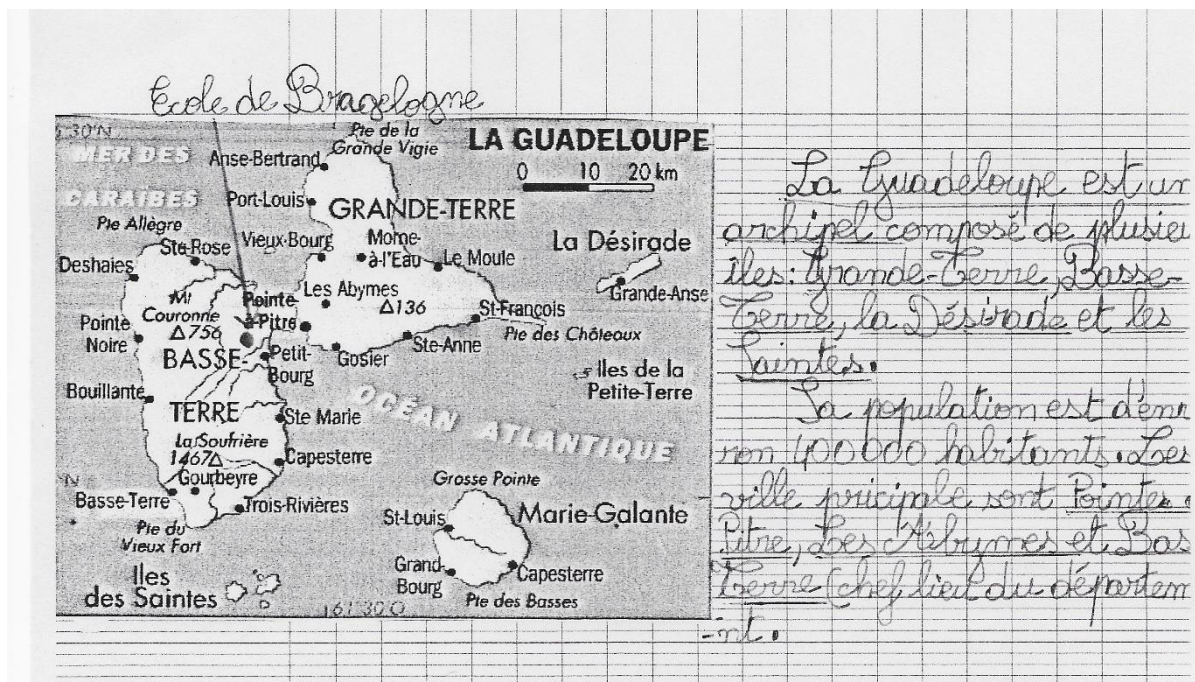 Ecole de Bragelogne
LA GUADELOUPE
0 10 20 km
MER DES
CARAÏBES
Pte de la
Grande Vigie
Anse-Bertrand
Port-Louis
GRANDE-TERRE
Pte Allègre
Ste-Rose
Vieux-Bourg
Morne-
à-l'Eau
Le Moule
La Désirade
Grande-Anse
Deshaies
Mt
Couronne
△756
Pointe-
à-Pitre
Les Abymes
△136
St-François
Pte des Châteaux
Pointe
Noire
BASSE-
TERRE
Petit-
Bourg
Gosier
Ste-Anne
Iles de la
Petite-Terre
Bouillante
Ste Marie
OCÉAN ATLANTIQUE
La Soufrière
1467△
Capesterre
Gourbeyre
Basse-Terre
Trois-Rivières
Pte du
Vieux Fort
Iles
des Saintes
Grosse Pointe
St-Louis
Marie-Galante
Grand
Bourg
Capesterre
Pte des Basses
61 30 O
La Guadeloupe est un
archipel composé de plusieu
îles: Grande-Terre, Basse-
Terre, la Désirade et les
Saintes.
Sa population est d'envi
ron 400 000 habitants. Les
ville pricipale sont Pointe.
Pitre, Les Abymes et Bas
Terre (chef lieu du départem
-nt.